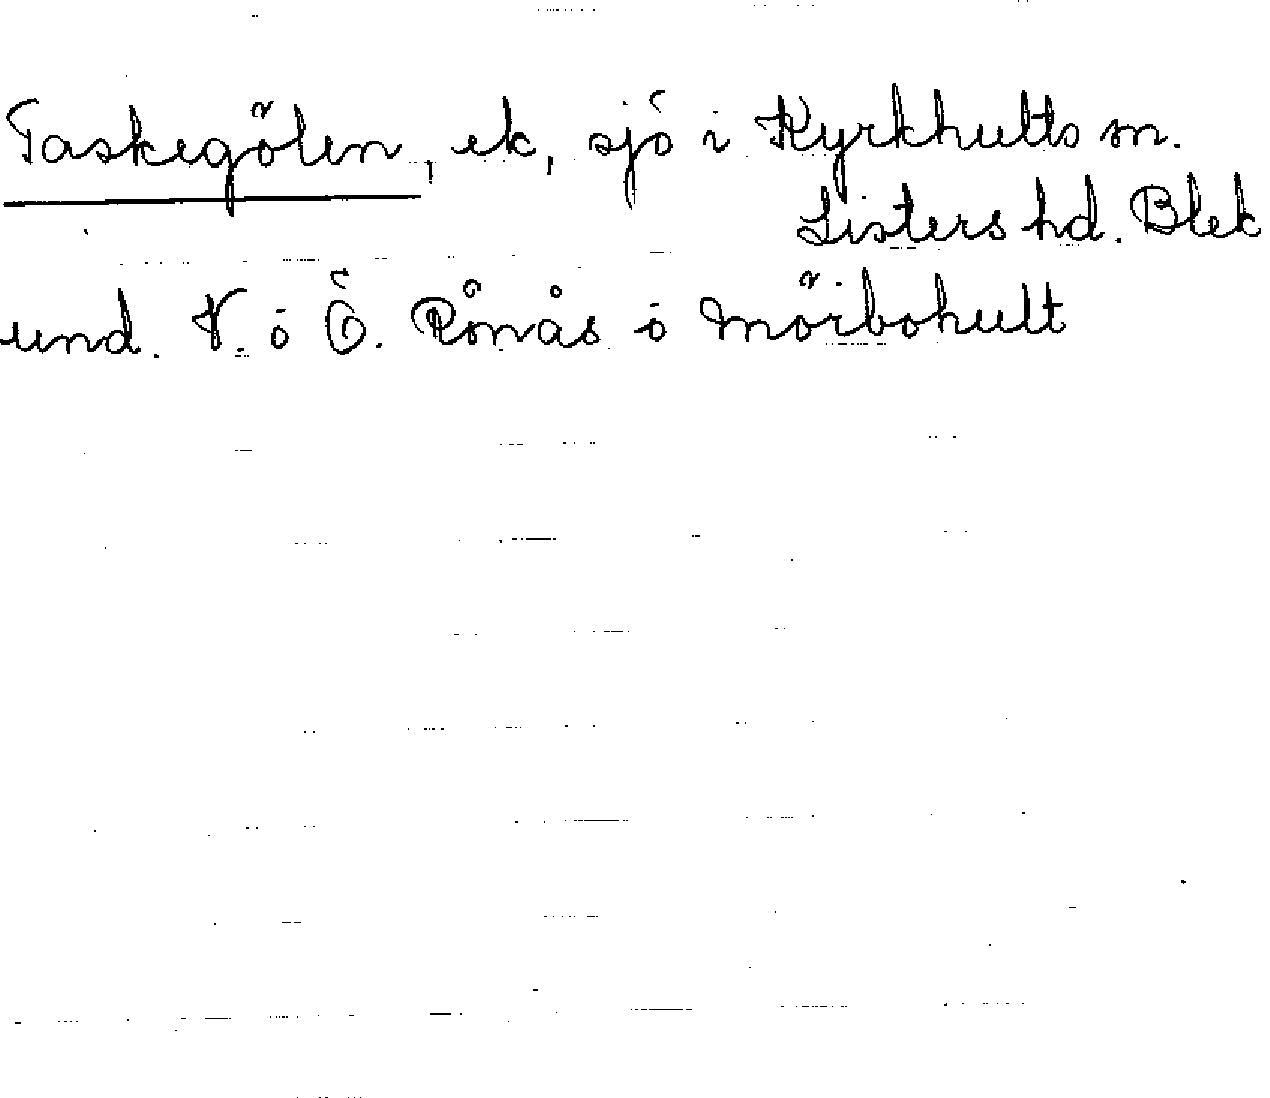 Taskegölen, ek, sjö i Kyrkhults sn.
Listers hd. Blek
und. V. o Ö. Rönås o Mörbohult